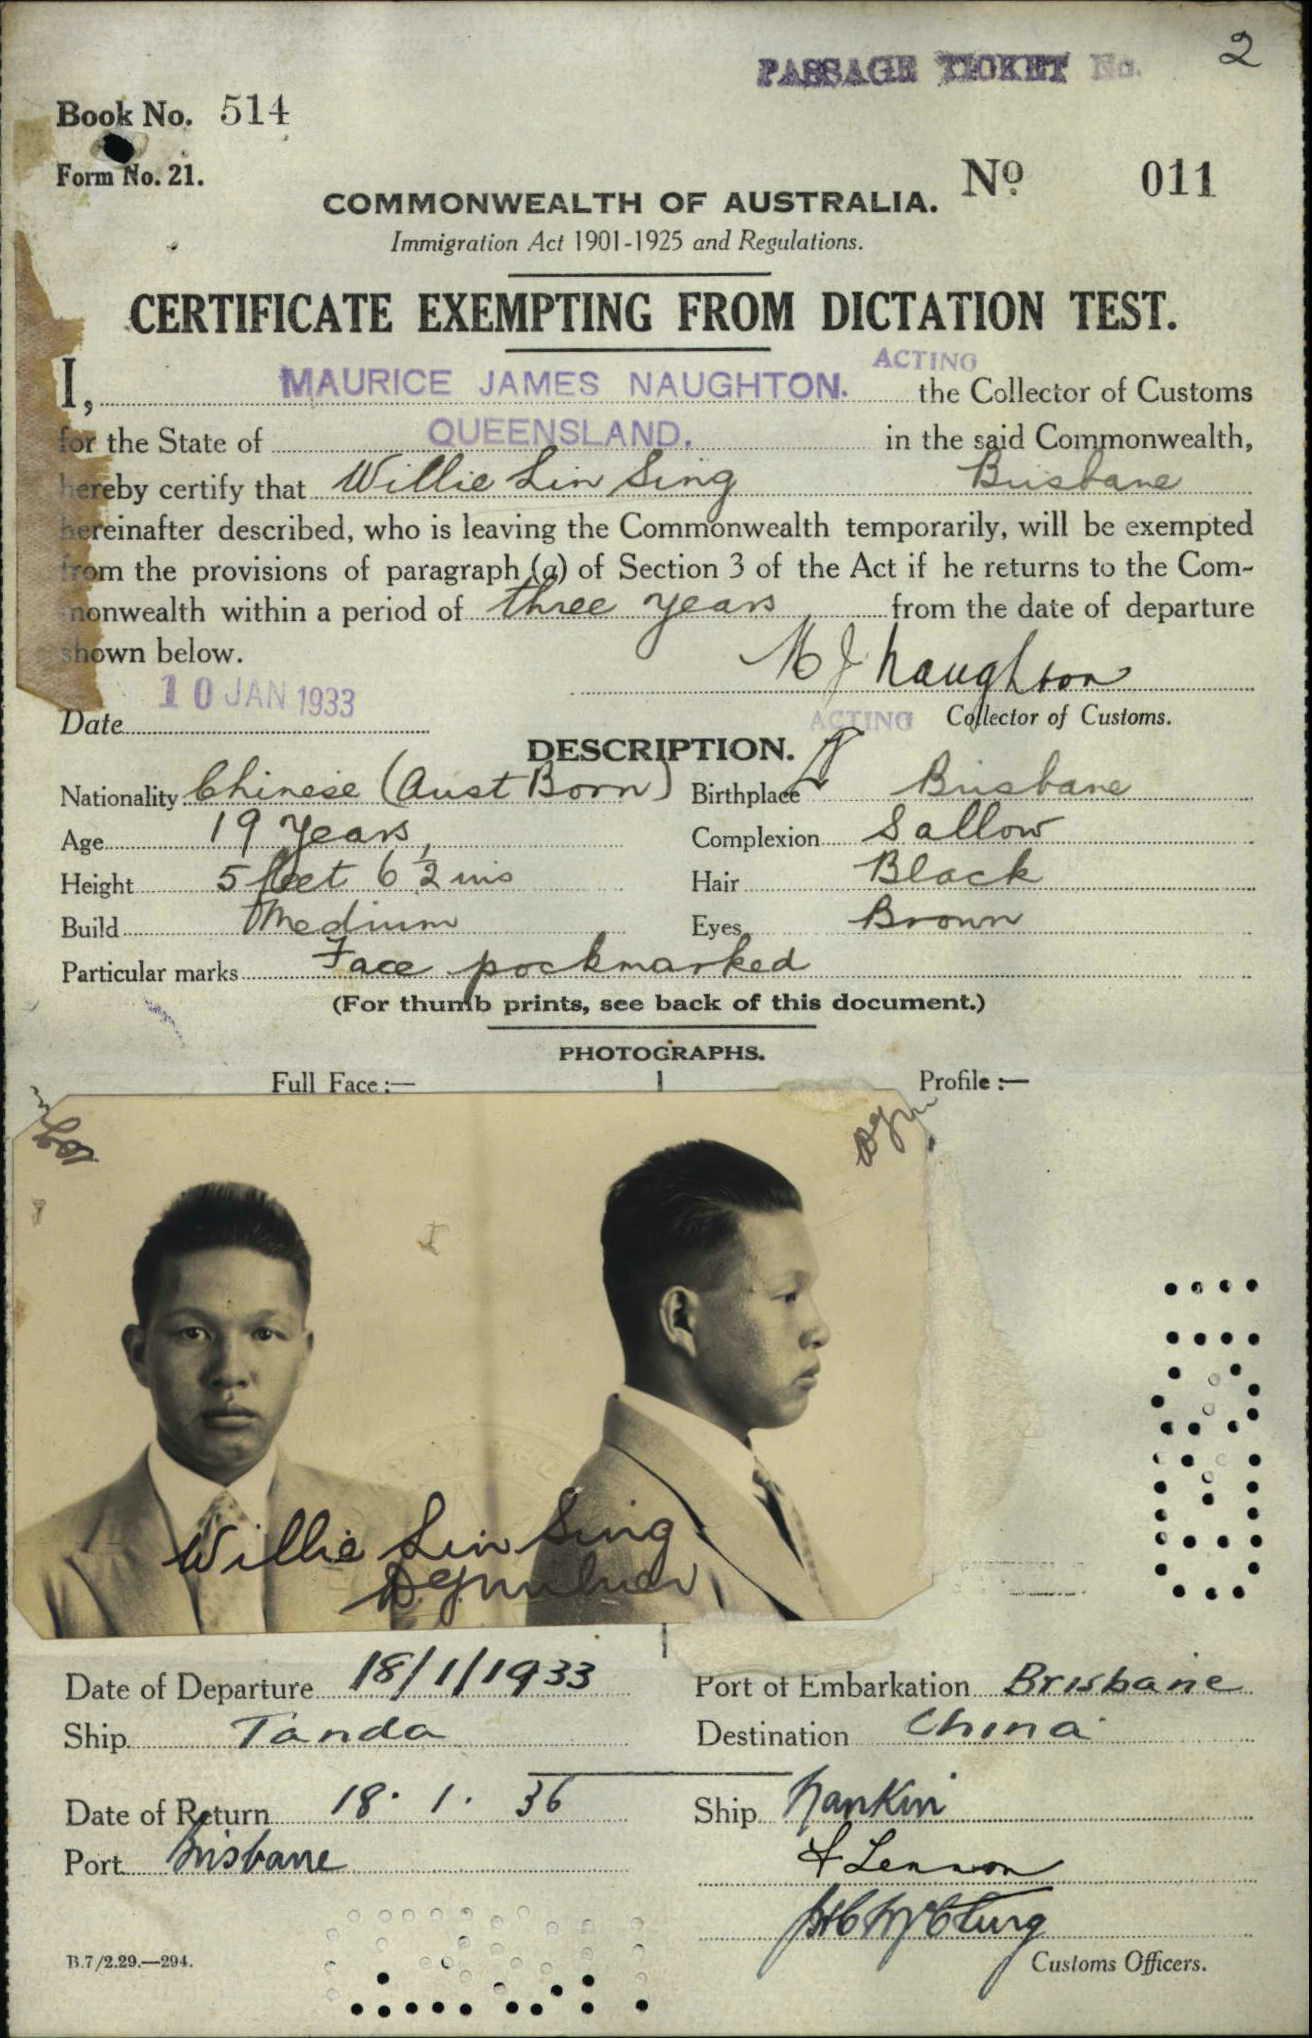 PASSAGE TICKET No.
2
Book No. 514
Form No. 21.
No 011
COMMONWEALTH OF AUSTRALIA.
Immigration Act 1901-1925 and Regulations.
CERTIFICATE EXEMPTING FROM DICTATION TEST.
I, MAURICE JAMES NAUGHTON. ACTING the Collector of Customs
for the State of QUEENSLAND. in the said Commonwealth,
hereby certify that Willie Lin Sing Brisbane
hereinafter described, who is leaving the Commonwealth temporarily, will be exempted
from the provisions of paragraph (a) of Section 3 of the Act if he returns to the Com-
monwealth within a period of three years from the date of departure
shown below.
M J Naughton
10 JAN 1933
Date
ACTING Collector of Customs.
DESCRIPTION.
Nationality Chinese (Aust Born) Birthplace Brisbane
Age 19 years, Complexion Sallow
Height 5 feet 6 1/2 ins Hair Black
Build Medium Eyes Brown
Particular marks Face pockmarked
(For thumb prints, see back of this document.)
PHOTOGRAPHS.
Full Face :— Profile :—
Willie Lin Sing
Date of Departure 18/1/1933 Port of Embarkation Brisbane
Ship Tanda Destination China
Date of Return 18. 1. 36 Ship Nankin
Port Brisbane
Lennon
Customs Officers.
B.7/2.29.—294.